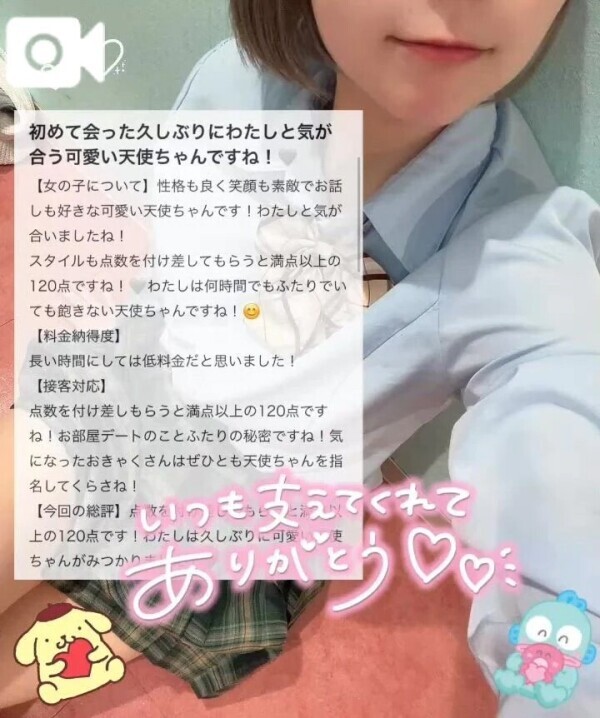 初めて会った久しぶりにわたしと気が
合う可愛い天使ちゃんですね！🖤
【女の子について】性格も良く笑顔も素敵でお話
しも好きな可愛い天使ちゃんです！わたしと気が
合いましたね！
スタイルも点数を付け差してもらうと満点以上の
120点ですね！🖤わたしは何時間でもふたりでい
ても飽きない天使ちゃんですね！😊
【料金納得度】
長い時間にしては低料金だと思いました！
【接客対応】
点数を付け差しもらうと満点以上の120点です
ね！お部屋デートのことふたりの秘密ですね！気
になったおきゃくさんはぜひとも天使ちゃんを指
名してくらさね！
【今回の総評】点数を
上の120点です！わたしは久しぶりに可愛い
ちゃんがみつかりま
いつも支えてくれて
ありがとう♡♡